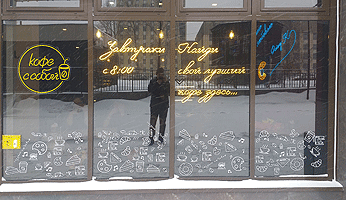 кофе
с собой
Завтраки
с 8:00
Найди
свой лучший
кофе здесь...